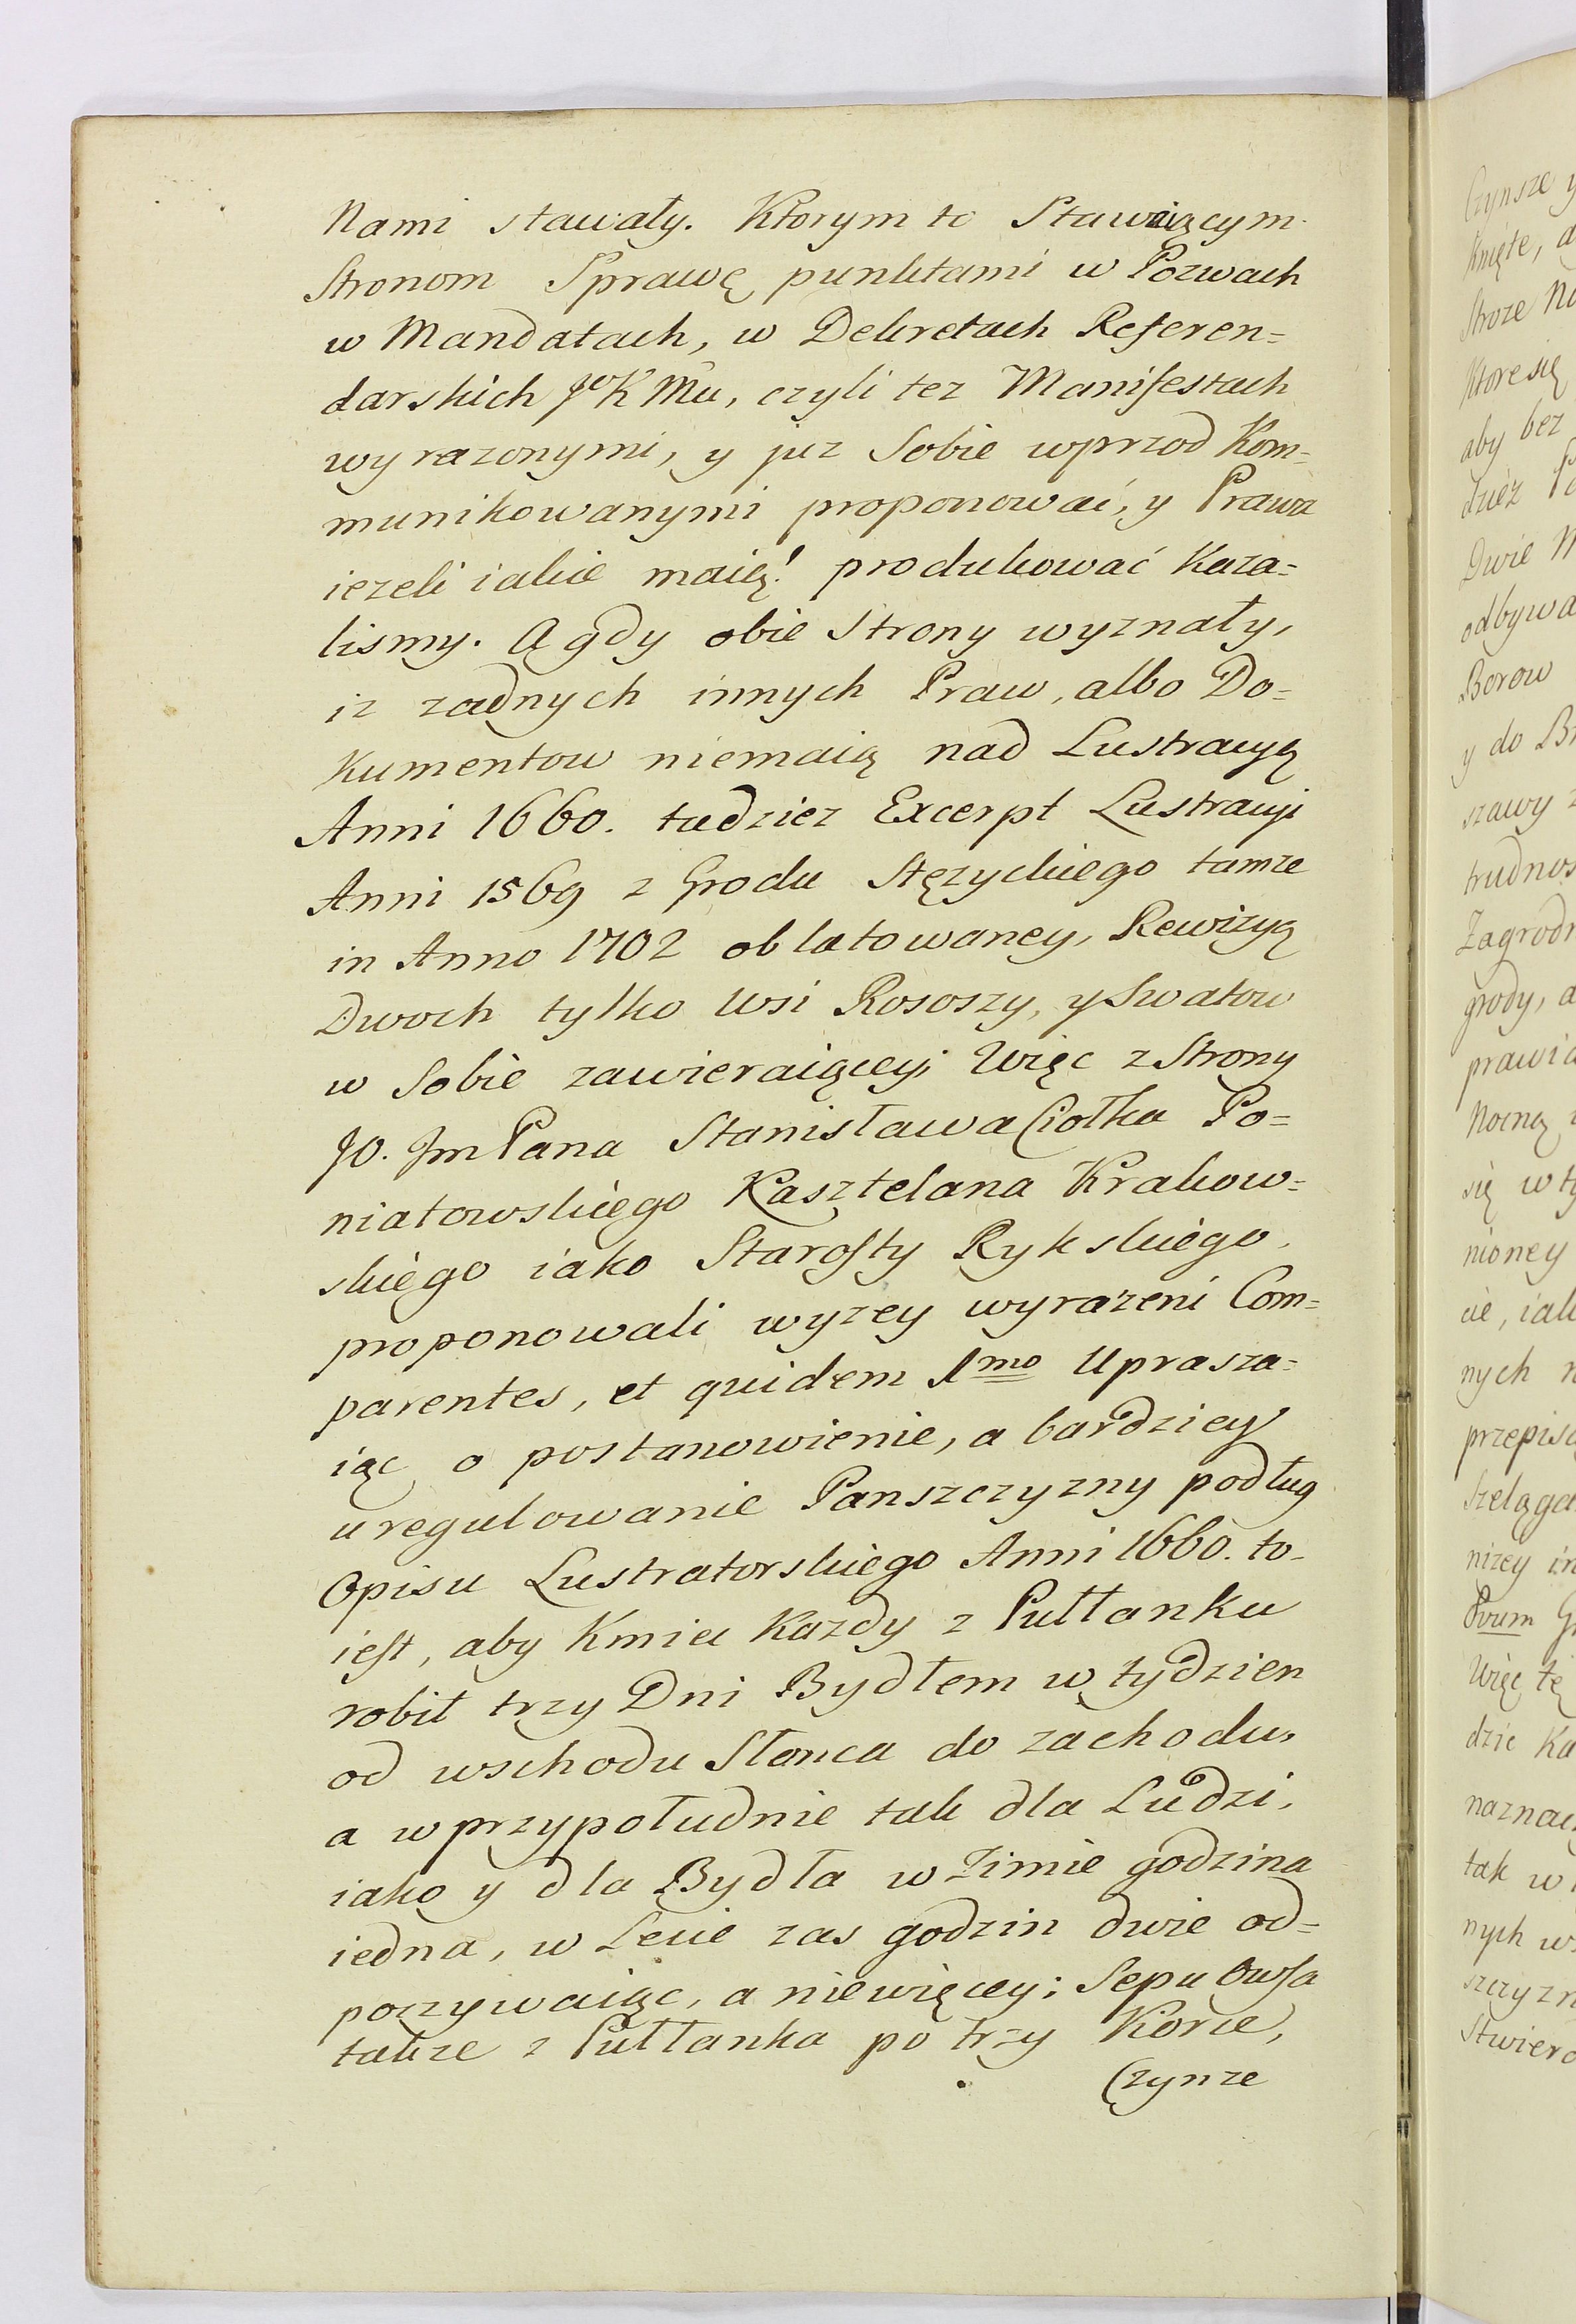 Nami stawały. Ktorym to Stawaiącym
Stronom Sprawę punktami w Pozwach
w Mandatach, w Dekretach Referen=
darskich JoK Mci, czyli tez Manifestach
wyrazonymi, y juz Sobie wprzod Kom=
munikowanymi proponować, y Prawa
iezeli iakie maią! produkować Kaza=
lismy. A gdy obie Strony wyznały,
iz zadnych innych Praw, albo Do=
kumentow niemaią nad Lustracyą
Anni 1660. tudziez Excerpt Lustracyi
Anni 1569 z Grodu Stęzyckiego tamze
in Anno 1702 oblatowaney, Rewizyą
Dwoch tylko Wsi Rososzy, y Swatow
w Sobie zawieraiącey; Więc z Strony
JO. Jm Pana Stanisława Ciołka Po=
niatowskiego Kasztelana Krakow=
skiego iako Starosty Rykskiego,
proponowali wyzey wyrażeni Com=
parentes, et quidem 1mo Uprasza=
iąc o postanowienie, a bardziey
uregulowanie Panszczyzny podług
Opisu Lustratorskiego Anni 1660. to=
iest, aby Kmieć Kazdy z Pułłanku
robił trzy Dni Bydłem w tydzien
od wschodu Słonca do zachodu,
a w przypołudnie tak dla Ludzi,
iako y dla Bydła w Zimie godzina
iedna, w Lecie zas godzin dwie od=
poczywaiąc, a niewięcey; Sepu Owsa
takze z Pułłanka po trzy Korce,
Czynze
Czynsze y
Knięte, a
Stroze No
Ktore się
aby bez
dziez Po
Dwie M
odbywa
Borow
y do Br
szawy z
trudnos
Zagrodn
grody, a
prawia
Nocną
się w ty
nioney
cie, iak
nych n
przepisa
Szeląga
nizey in
Pvum G
Więc tę
dzie Ka
naznacz
tak w
nych w
szczyzn
Stwierd